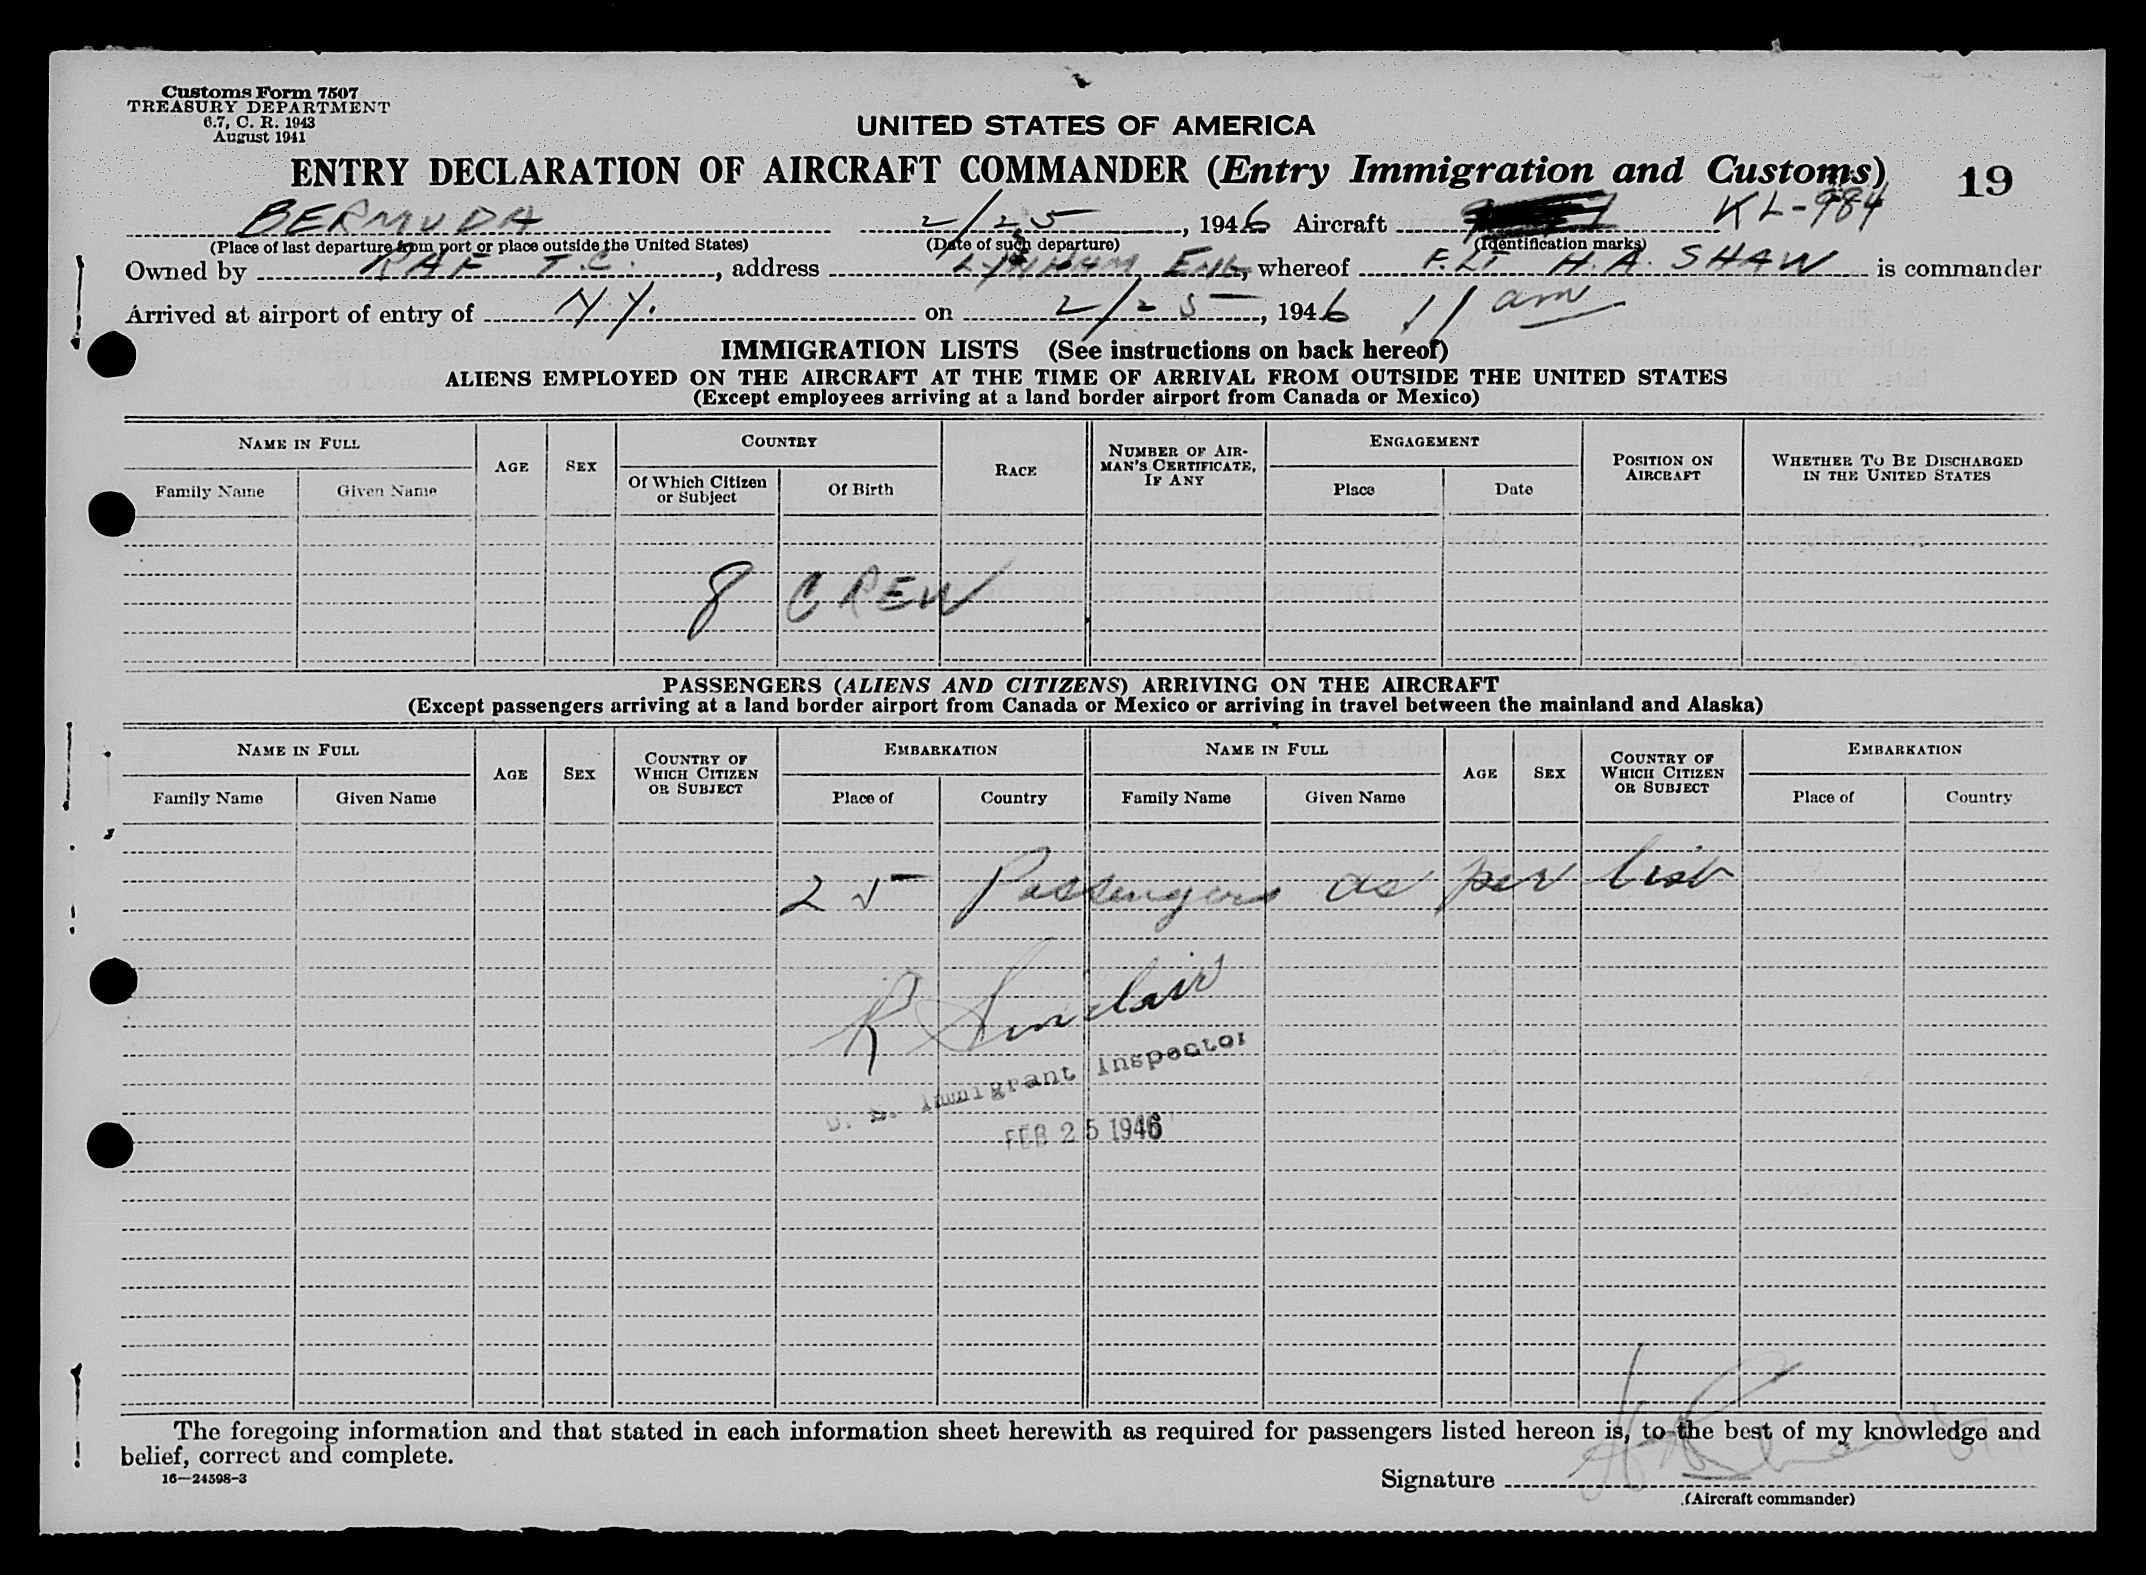 Customs Form 7507
TREASURY DEPARTMENT
6.7, C. R. 1943
August 1941
UNITED STATES OF AMERICA
ENTRY DECLARATION OF AIRCRAFT COMMANDER (Entry Immigration and Customs) 19
BERMUDA 2/25, 1946 Aircraft KL-984
(Place of last departure from port or place outside the United States) (Date of such departure) (Identification marks)
Owned by RAF T.C., address LYNHAM ENG, whereof F. LT H.A. SHAW is commander
Arrived at airport of entry of N.Y. on 2/25, 1946 11 am
IMMIGRATION LISTS (See instructions on back hereof)
ALIENS EMPLOYED ON THE AIRCRAFT AT THE TIME OF ARRIVAL FROM OUTSIDE THE UNITED STATES
(Except employees arriving at a land border airport from Canada or Mexico)
NAME IN FULL AGE SEX COUNTRY RACE NUMBER OF AIRMAN'S CERTIFICATE, IF ANY ENGAGEMENT POSITION ON AIRCRAFT WHETHER TO BE DISCHARGED IN THE UNITED STATES
Family Name Given Name Of Which Citizen or Subject Of Birth Place Date
8 CREW
PASSENGERS (ALIENS AND CITIZENS) ARRIVING ON THE AIRCRAFT
(Except passengers arriving at a land border airport from Canada or Mexico or arriving in travel between the mainland and Alaska)
NAME IN FULL AGE SEX COUNTRY OF WHICH CITIZEN OR SUBJECT EMBARKATION NAME IN FULL AGE SEX COUNTRY OF WHICH CITIZEN OR SUBJECT EMBARKATION
Family Name Given Name Place of Country Family Name Given Name Place of Country
25 Passengers as per list
R Sinclair
U. S. Immigrant Inspector
FEB 25 1946
The foregoing information and that stated in each information sheet herewith as required for passengers listed hereon is, to the best of my knowledge and
belief, correct and complete.
16—24598-3
Signature
(Aircraft commander)